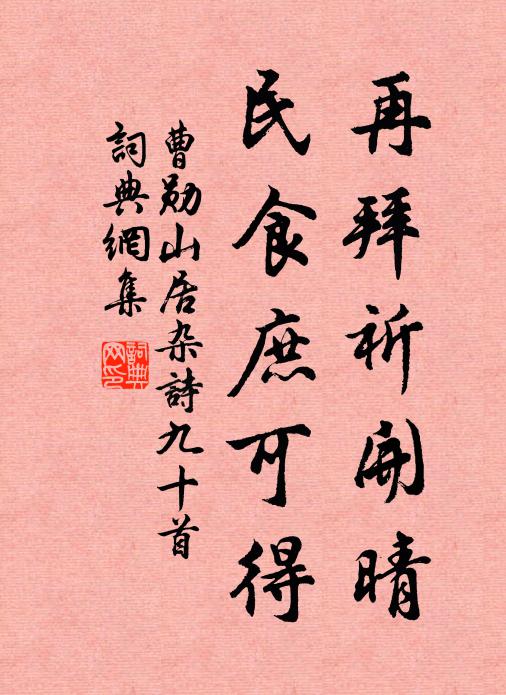 再拜祈開晴
民食庶可得
曹勛山居杂詩九十首
詞典網集
詞典网印